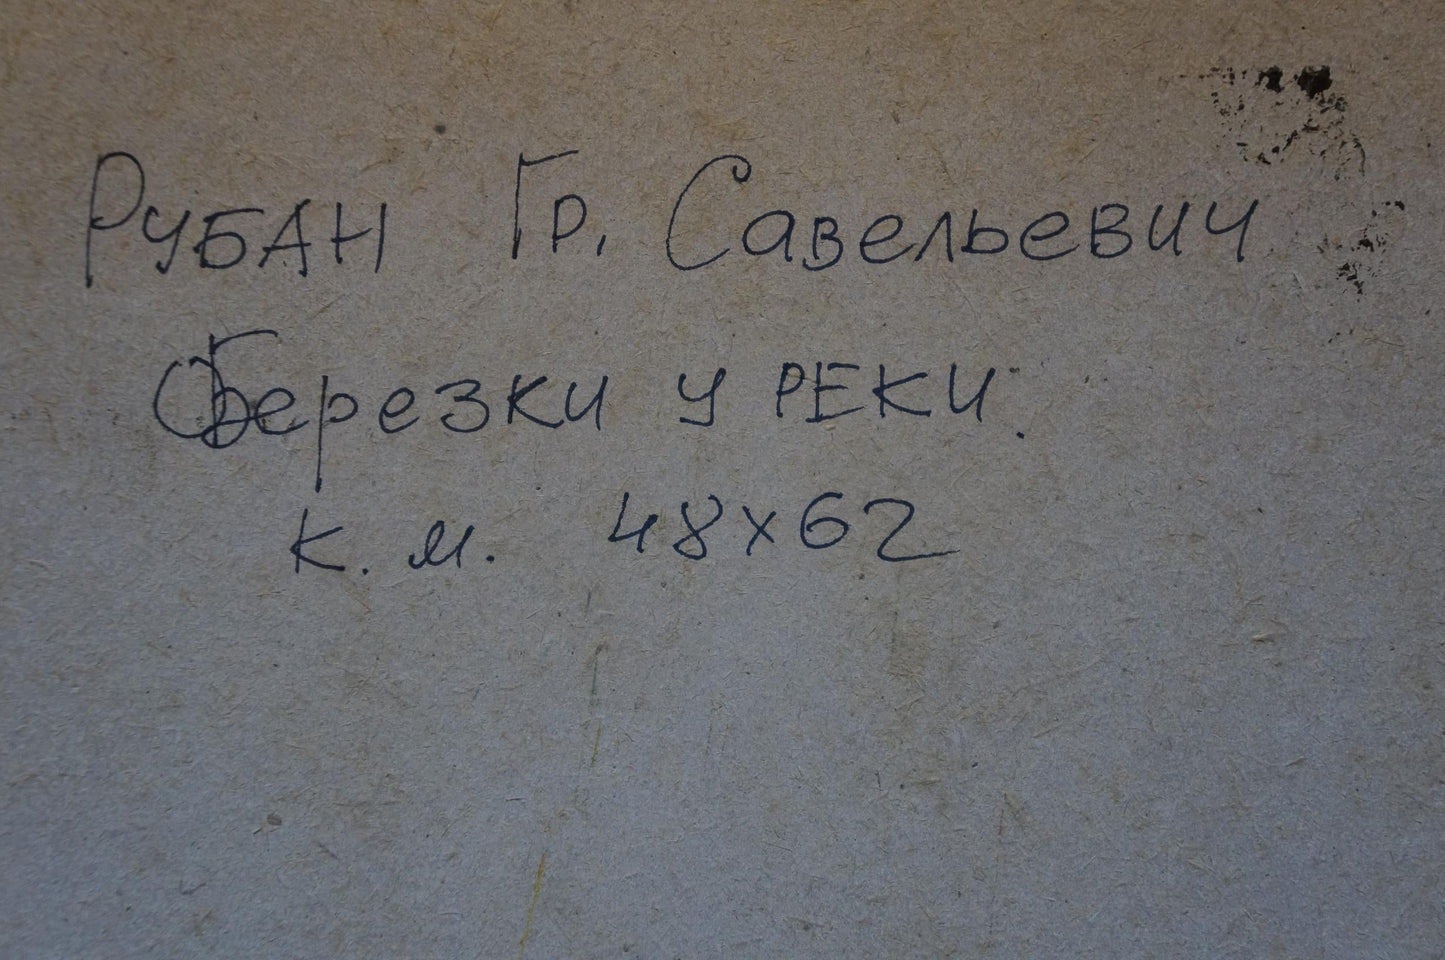 Рубан Гр. Савельевич
Березки у реки.
к. м. 48х62